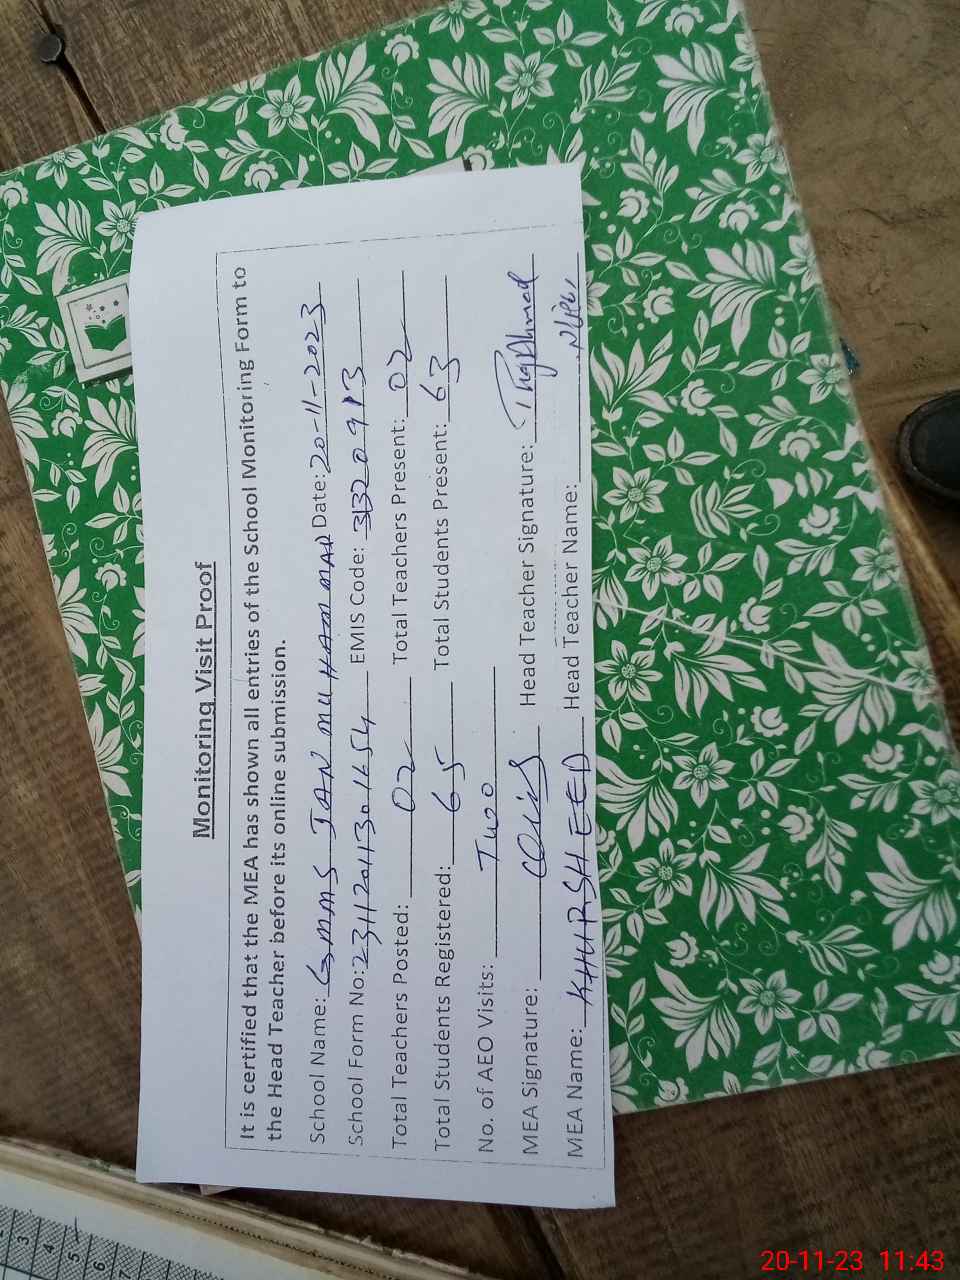 Monitoring Visit Proof
It is certified that the MEA has shown all entries of the School Monitoring Form to
the Head Teacher before its online submission.
School Name: GMMS JAN MUHAMMAD Date: 20-11-2023
School Form No: 231120113016 54 EMIS Code: 31320913
Total Teachers Posted: 02 Total Teachers Present: 02
Total Students Registered: 65 Total Students Present: 63
No. of AEO Visits: Two
MEA Signature: Head Teacher Signature: Ahmed
MEA Name: KHURSHEED Head Teacher Name:
2
3
4
5
6
7
20-11-23 11:43